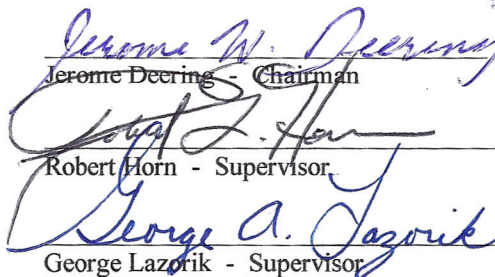 Jerome W. Deering
Jerome Deering - Chairman
Robert L. Horn
Robert Horn - Supervisor
George A. Lazorik
George Lazorik - Supervisor